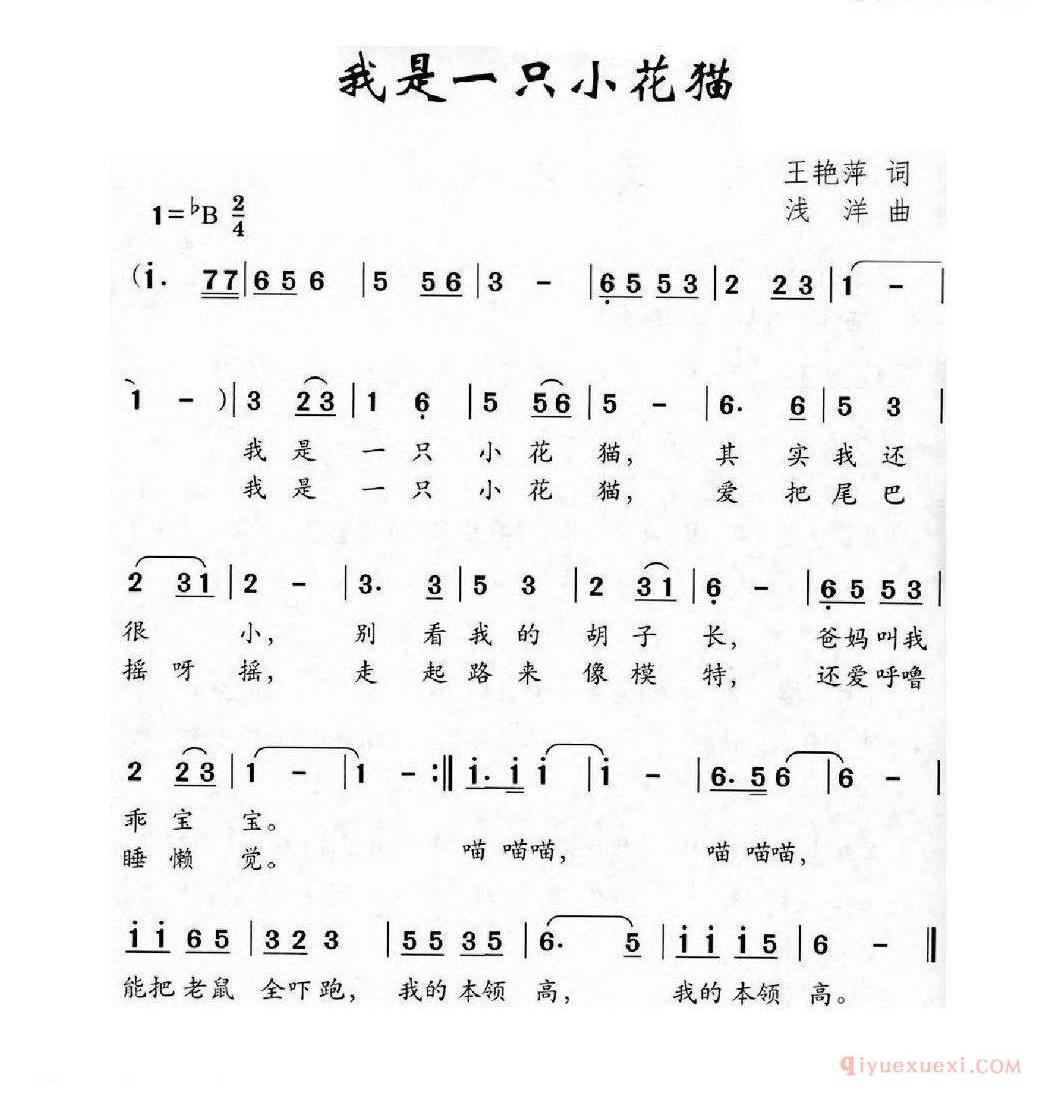 我是一只小花猫
王艳萍 词
1=♭B 2/4
浅 洋 曲
(i. 77|656 |5 56|3 -|6553|2 23|1 -|
1 -)|3 23|1 6|5 56|5 -|6. 6|5 3|
我 是 一 只 小 花 猫, 其 实 我 还
我 是 一 只 小 花 猫, 爱 把 尾 巴
2 31|2 -|3. 3|5 3|2 31|6 -|6553|
很 小, 别 看 我 的 胡 子 长, 爸妈叫我
摇 呀 摇, 走 起 路 来 像 模 特, 还爱呼噜
2 23|1 -|1 -:‖i. i i|i -|6. 5 6|6 -|
乖 宝 宝。 喵 喵喵, 喵 喵喵,
睡 懒 觉。
i i 6 5|3 2 3|5 5 3 5|6. 5|i i i 5|6 -‖
能把老鼠 全吓跑, 我的本领 高, 我的本领 高。
qiyuexuexi.com